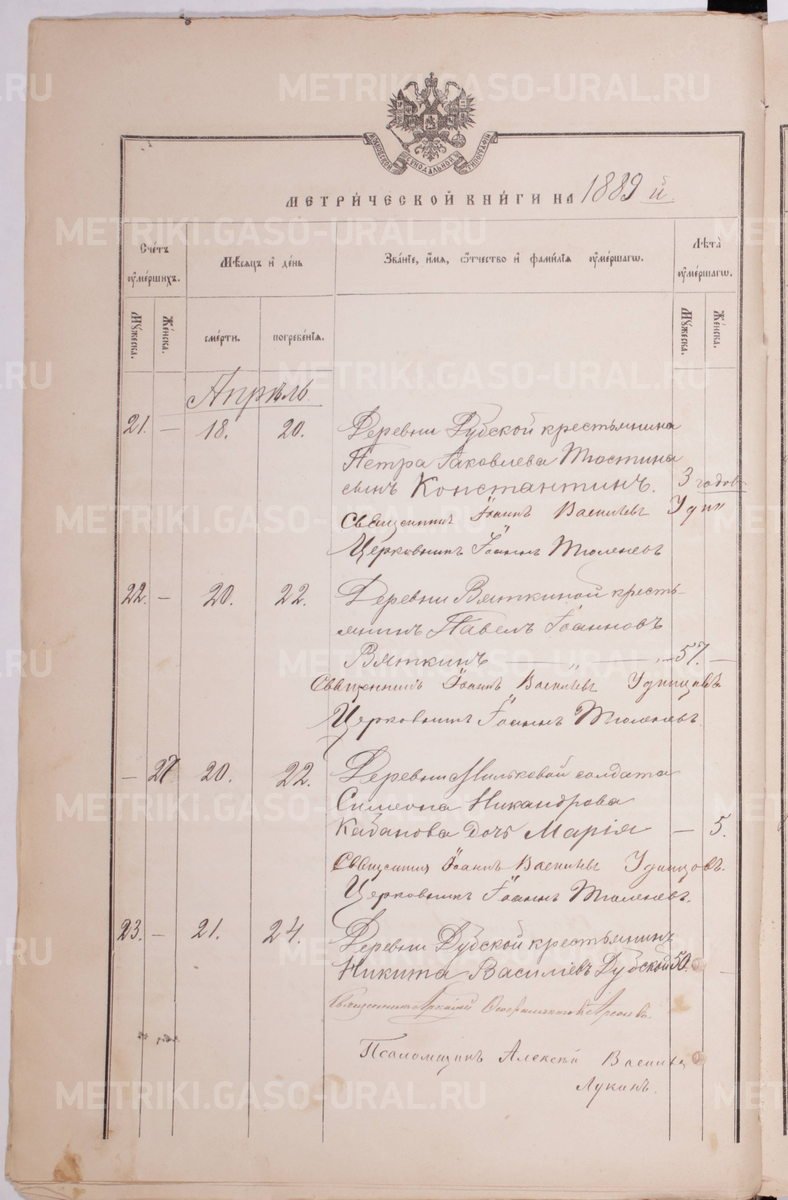 METRIKI.GASO-URAL.RU
МОСКОВСКОЙ СѴНОДАЛЬНОЙ ТИПОГРАФІИ
МЕТРИ́ЧЕСКОЙ КНИ́ГИ НА 1889 й.
Сче́тъ ᲂу҆ме́ршихъ.
Мѣ́сяцъ и҆ де́нь
Зва́нїе, и҆́мя, ѻ҆́тчество и҆ фами́лїя ᲂу҆ме́ршагѡ.
Лѣ́та ᲂу҆ме́ршагѡ.
Му́жеска.
Же́нска.
сме́рти.
погребе́нїя.
Му́жеска.
Же́нска.
Апрѣль
21. — 18. 20. Деревни Дубской крестьянина
Петра Іаковлева Тюстина
сынъ Константинъ. 3 годовъ
Священникъ Іоаннъ Васильевъ
Церковникъ Іоаннъ Тюленевъ
22. — 20. 22. Деревни Вяткиной кресть-
янинъ Павелъ Іоанновъ
Вяткинъ — 57. —
Священникъ Іоаннъ Васильевъ Удинцовъ
Церковникъ Іоаннъ Тюленевъ.
— 27 20. 22. Деревни Мильковой солдата
Симеона Никандрова
Кабанова дочь Марія — 5.
Священникъ Іоаннъ Васильевъ Удинцовъ.
Церковникъ Іоаннъ Тюленевъ.
23. — 21. 24. Деревни Дубской крестьянинъ
Никита Василіевъ Дубской 50. —
Священникъ
Псаломщикъ Алексій Васильев
Лукинъ.